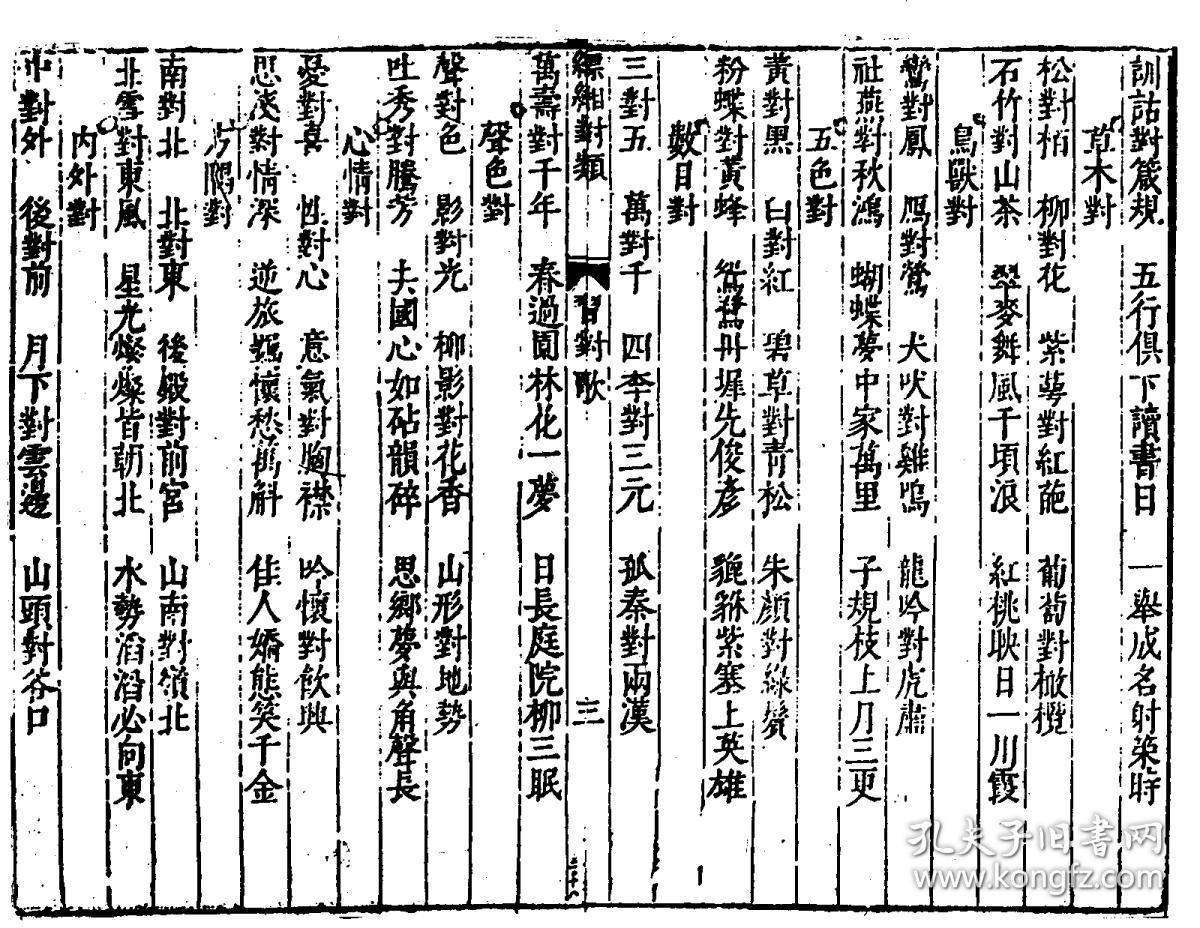 訓詁對箴規　五行俱下讀書日　一舉成名射策時
草木對
松對柏　柳對花　紫萼對紅葩　葡萄對橄欖
石竹對山茶　翠麥舞風千頃浪　紅桃映日一川霞
鳥獸對
鸞對鳳　鴈對鶯　犬吠對雞鳴　龍吟對虎嘯
社燕對秋鴻　蝴蝶夢中家萬里　子規枝上月三更
五色對
黃對黑　白對紅　碧草對青松　朱顏對綠鬢
粉蝶對黃蜂　鴛鴦丹墀先俊彥　貔貅紫塞上英雄
數目對
三對五　萬對千　四季對三元　孤秦對兩漢
縹緗對類　習對歌　三
萬壽對千年　春過園林花一夢　日長庭院柳三眠
聲色對
聲對色　影對光　柳影對花香　山形對地勢
吐秀對騰芳　去國心如砧韻碎　思鄉夢與角聲長
心情對
憂對喜　性對心　意氣對胸襟　吟懷對飲興
思淡對情深　逆旅羈懷愁萬斛　佳人嬌態笑千金
方隅對
南對北　北對東　後殿對前宮　山南對嶺北
北雪對東風　星光燦燦皆朝北　水勢滔滔必向東
內外對
中對外　後對前　月下對雲邊　山頭對谷口
孔夫子旧书网
www.kongfz.com